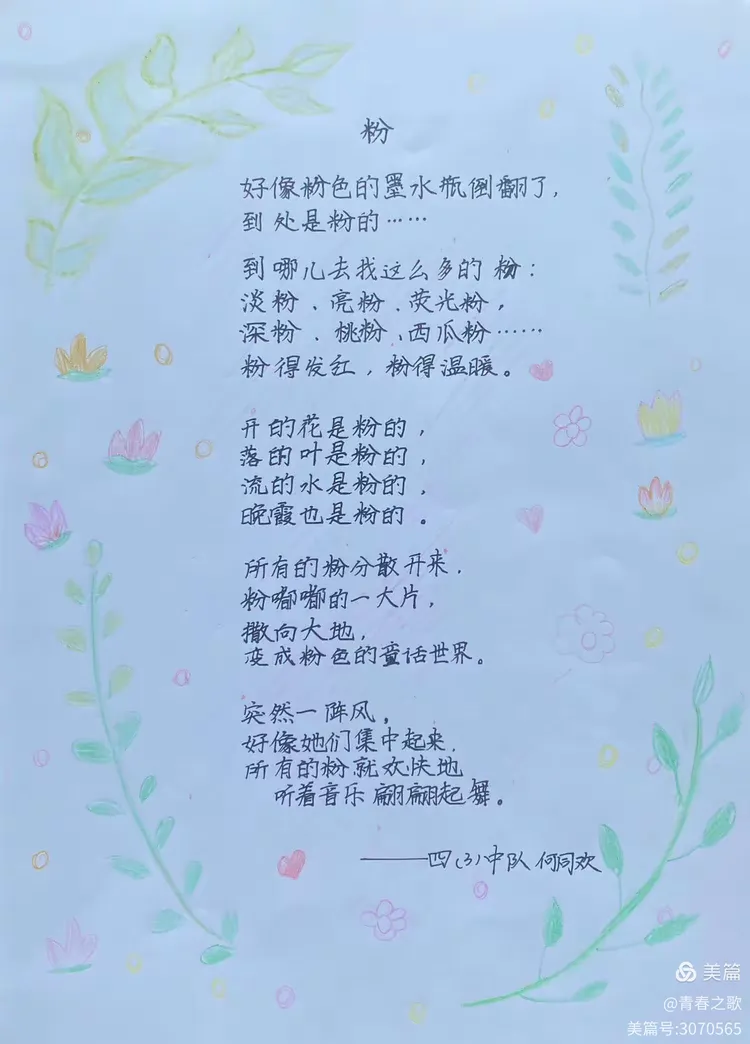 粉
好像粉色的墨水瓶倒翻了，
到处是粉的……
到哪儿去找这么多的粉：
淡粉、亮粉、荧光粉，
深粉、桃粉、西瓜粉……
粉得发红，粉得温暖。
开的花是粉的，
落的叶是粉的，
流的水是粉的，
晚霞也是粉的。
所有的粉分散开来，
粉嘟嘟的一大片，
撒向大地，
变成粉色的童话世界。
突然一阵风，
好像她们集中起来，
所有的粉就欢快地
听着音乐翩翩起舞。
——四（3）中队 何同欢
美篇
@青春之歌
美篇号:3070565